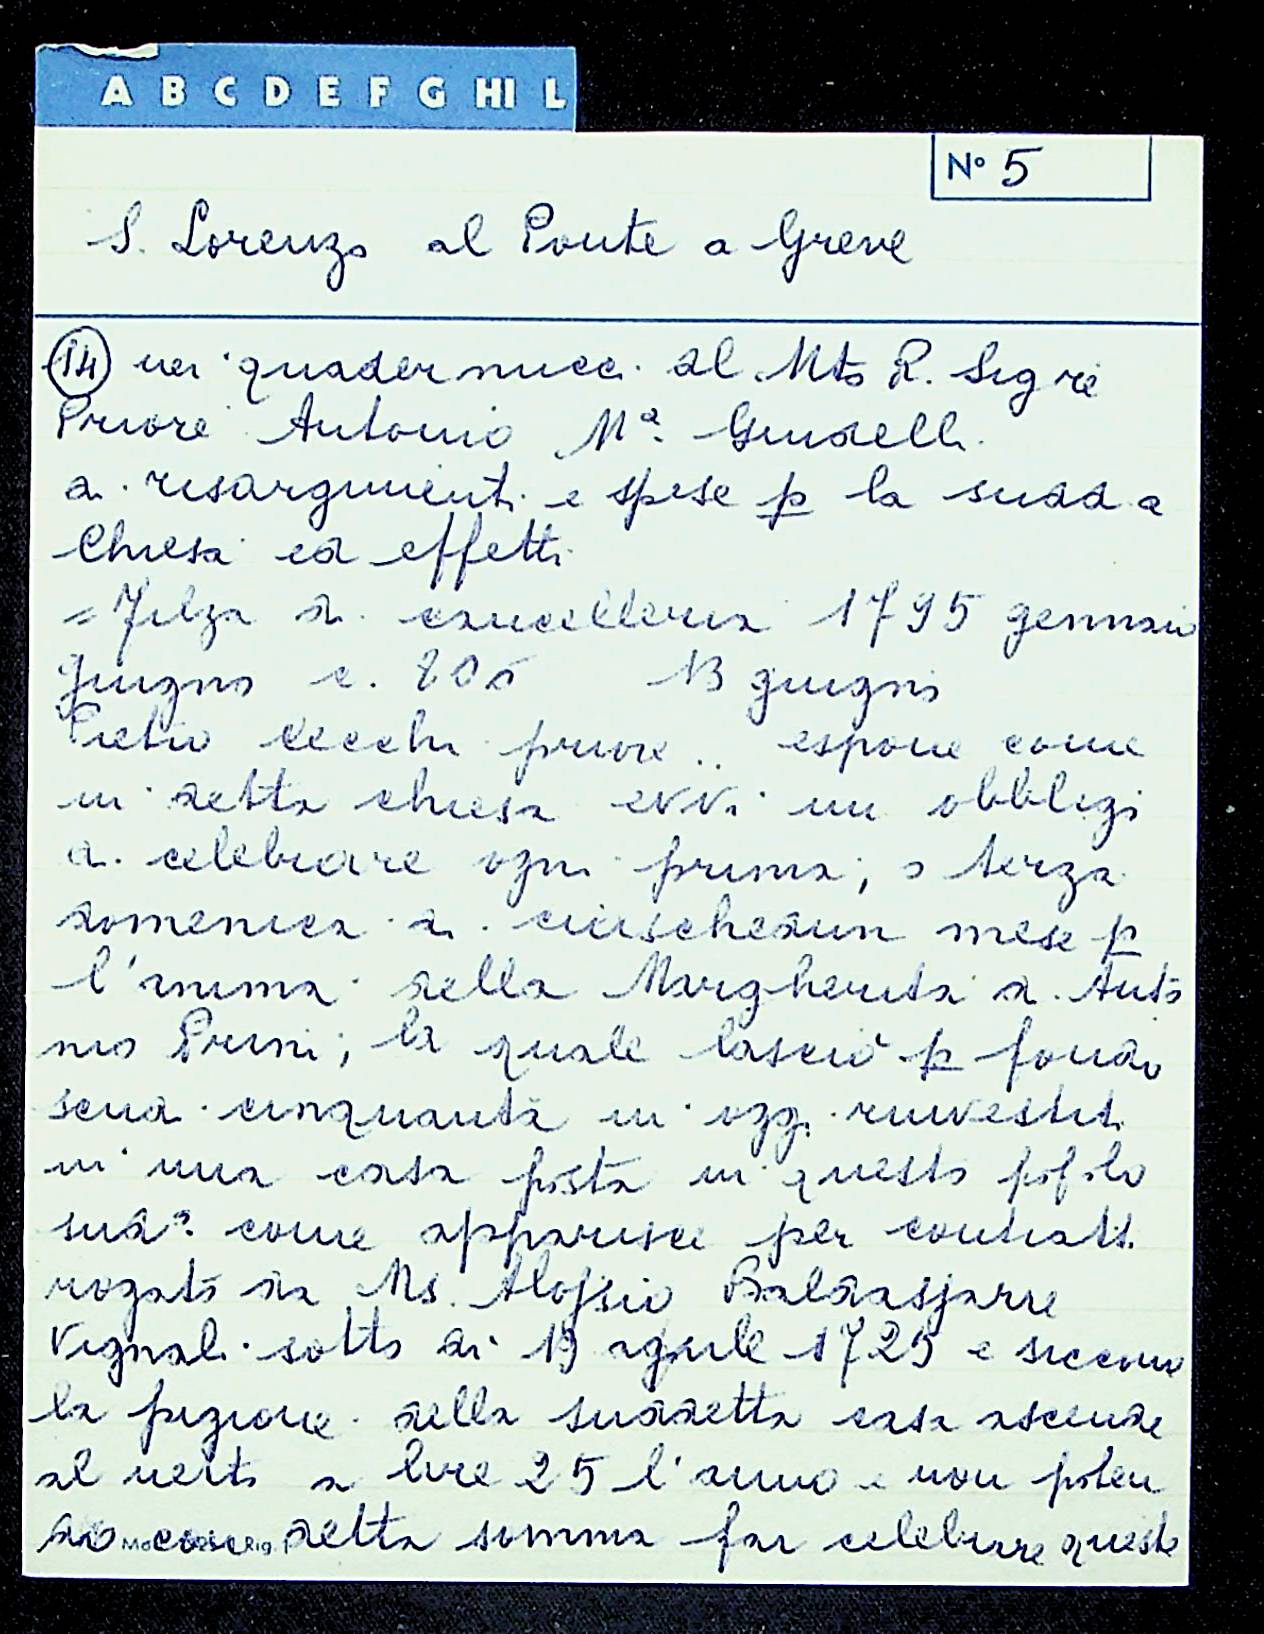 A B C D E F G HI L
Nº 5
S. Lorenzo al Ponte a Greve
14 nei quadernucci al Mto R. Sigre
Priore Antonio Mª.
a risarcimenti e spese p la sudda
Chiesa ed effetti
= Filza di cancelleria 1795 gennaio
giugno c. 13 giugno
Pietro Cecchi priore .. espone come
in detta chiesa evvi un obbligo
di celebrare ogni prima, o terza
domenica di ciaschedun mese p
l'anima della Margherita d. Anto
nio Prini; la quale lasciò p fondo
scudi cinquanta in oggi rinvestiti
in una casa posta in questo popolo
sudº come apparisce per contratto
rogato da Ms. Alojsio Baldassarre
Vignali sotto di 19 aprile 1725 e siccome
la pigione della suddetta casa ascende
al netto a lire 25 l'anno e non poten
do con detta somma far celebrare queste